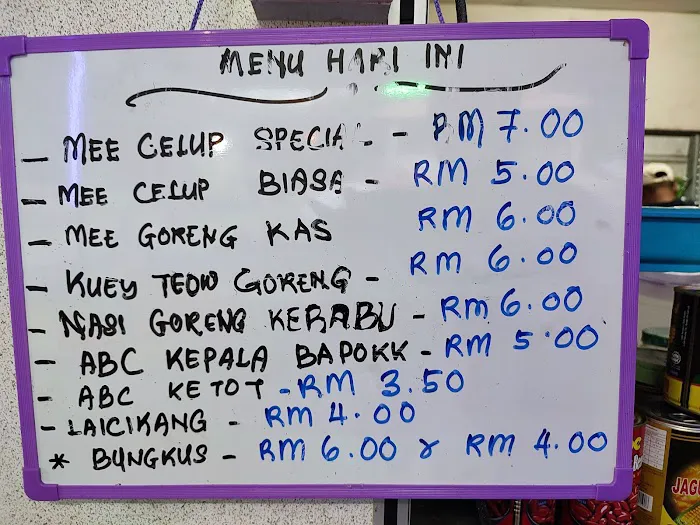 MENU HARI INI
- MEE CELUP SPECIAL - RM 7.00
- MEE CELUP BIASA - RM 5.00
- MEE GORENG KAS RM 6.00
- KUEY TEOW GORENG - RM 6.00
- NASI GORENG KERABU - RM 6.00
- ABC KEPALA BAPOKK - RM 5.00
- ABC KETOT - RM 3.50
- LAICIKANG - RM 4.00
* BUNGKUS - RM 6.00 & RM 4.00
JAGU